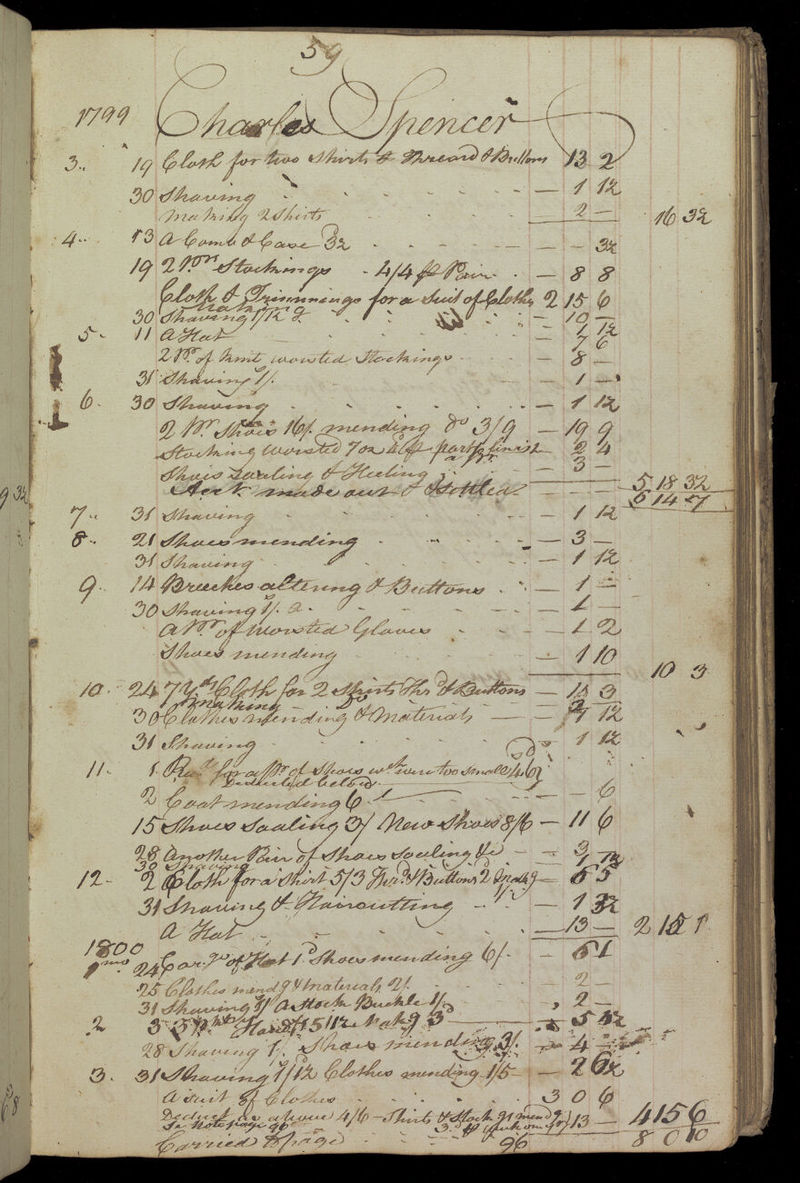 59
1799 Charles Spencer
3.. 19 Cloth for two Shirts & Thread & Buttons 13 2
30 Shaving — 1 1½
making 2 Shirts 2 — 16 3½
4.. 13 A Comb & Case 3½ — — 3½
19 2 Pr. Stockings 4/4 Pair — 8 8
Cloth & Trimmings for a Suit of Clothes 2 15 6
making — 10 —
30 Shaving 1/1½ — 1 1½
5. 11 A Hat — 7 6
2 Pr. of knit worsted Stockings — 8 —
31 Shaving 1/. — 1 —
6. 30 Shaving — 1 1½
2 Pr. Shoes 16/. mending do 3/9 — 19 9
Stocking worsted 7 oz — 2 4
Shoes soaling & Heeling — 3 —
5 18 3½
Acct. made out & Settled 6 14 7
7.. 31 Shaving — 1 1½
8.. 21 Shoes mending — 3 —
31 Shaving — 1 1½
9. 14 Breeches altering & Buttons — 1 —
30 Shaving 1/. — 1 —
A Pr. of Worsted Gloves — 1 2
Shoes mending — 1 10
10 3
10. 24 7 Yds Cloth for 2 Shirts Thrd & Buttons — 15 3
making Do 2
30 Clothes mending & Materials — 7 1½
31 Shaving 1 1½
11. 1. for a Pr. of Shoes wch. were too small 4/6
Deducted below
2 Coat mending 6d — — 6
15 Shoes soaling 3/ New Shoes 8/6 — 11 6
28 Another Pair of Shoes soaling &c — 3 —
30 Shaving 1 1½
12. 2 Cloth for a Shirt 5/3 Thrd. & Buttons 2d makg — 6 5
31 Shaving & Haircutting — 1 3½
A Hat — 13 — 2 15 1
1800
1mo 24 Car.ge of Hat 1d Shoes mending 6/. — 6 1
25 Clothes mendg & Materials 2/. — 2 —
31 Shaving 1/ A Stock Buckle 1/. 2 —
2 3 makg 3d 5 4½
28 Shaving 1/. Shoes mending 3/. — 4 —
3. 31 Shaving 1/1½ Clothes mending 1/5 — 2 6½
A Suit of Clothes 3 0 6
Deduct as above 4/6 — Shirts & Stock 13 — 4 15 6
Se Note page 96
Carried to page 96 8 0 10